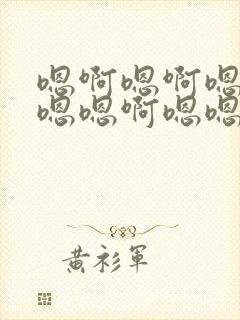 嗯啊嗯啊嗯
嗯嗯啊嗯嗯
黃衫軍